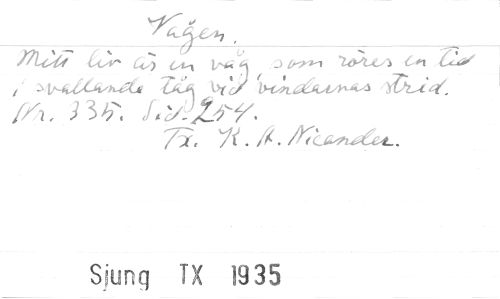 Vågen.
Mitt liv är en våg, som röres en tid
i svallande tåg vid vindarnas strid.
Nr. 335. Sid. 254.
Tx. K. A. Nicander.
Sjung TX 1935